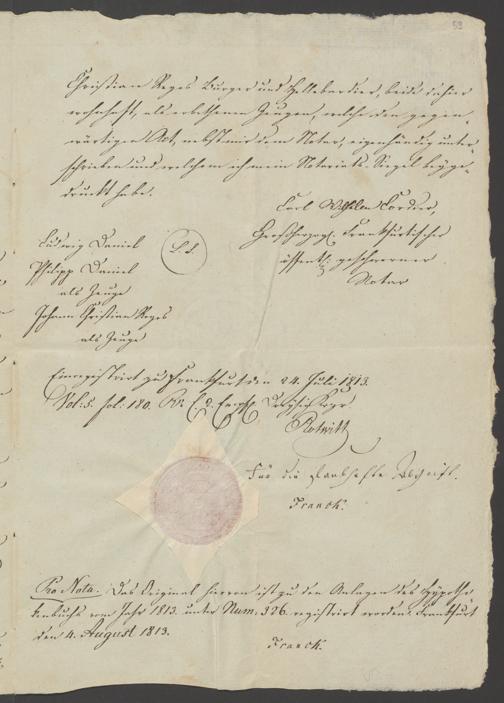 59
Christian Reges Bürger und Hellebardier, beide dahier
wohnhaft, als erbethenen Zeugen, welche den gegen-
wärtigen Act, nebst mir dem Notar, eigenhändig unter-
schrieben und welchem ich mein Notariats-Siegel beyge-
druckt habe.
Carl Wilhelm Cordier,
Großherzogl. Frankfurtischer
öffentl. geschworner
Notar
Ludwig Daniel
(L. S.)
Philipp Daniel
als Zeuge
Johann Christian Reges
als Zeuge
Einregistrirt zu Frankfurt den 24. Juli 1813.
Vol: 5. fol: 180.
Für die Abschrift.
Franck.
Pro Nota. Das Original hiervon ist zu den Anlagen des Hypothe-
kenbuchs vom Jahr 1813. unter Num. 326. registrirt worden. Frankfurt
den 4. August 1813.
Franck.